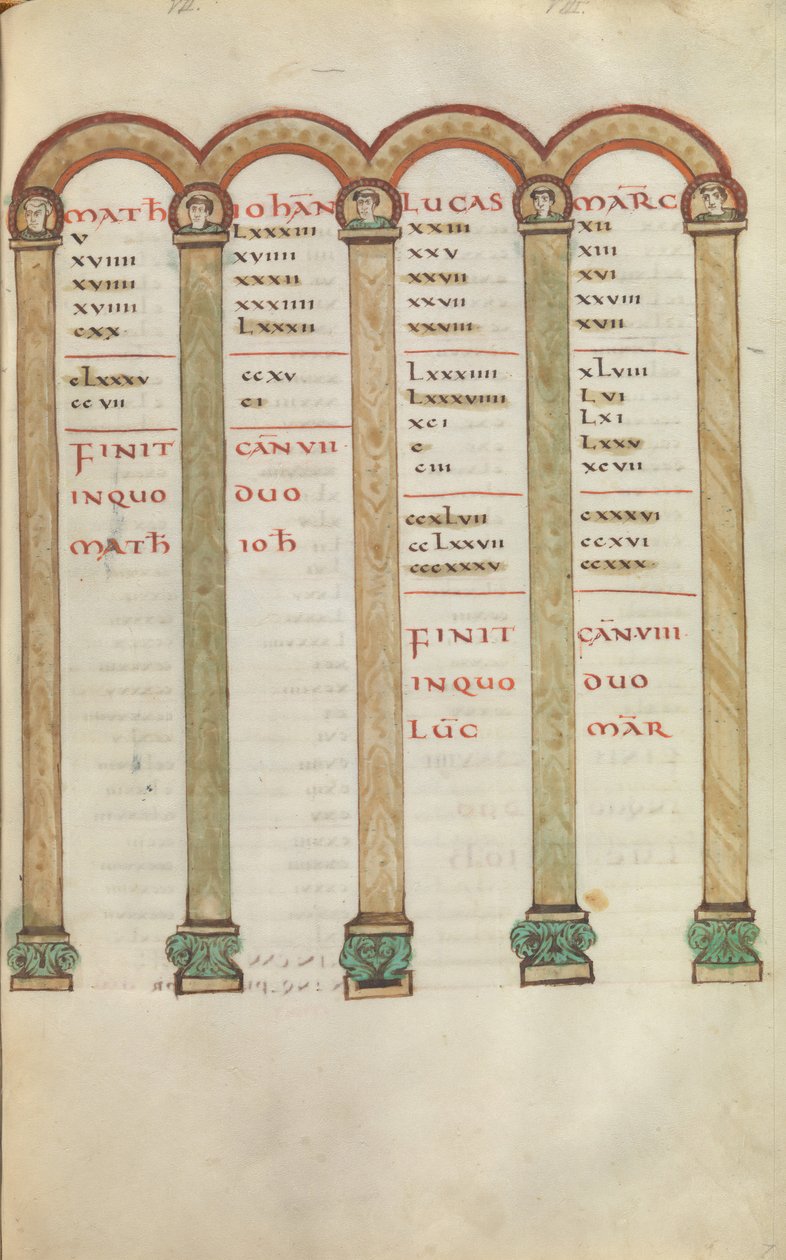 VII.
VIII.
MATħ
V
XVIIII
XVIIII
XVIIII
CXX
CLXXXV
CCVII
FINIT
INQUO
MATħ
IOhAN̄
LXXXIII
XVIIII
XXXII
XXXIIII
LXXXII
CCXV
CI
CAN̄ VII
DUO
IOħ
LUCAS
XXIII
XXV
XXVII
XXVII
XXVIII
LXXXIIII
LXXXVIIII
XCI
C
CIII
CCXLVII
CCLXXVII
CCCXXXV
FINIT
INQUO
LŪC
MĀRC
XII
XIII
XVI
XXVIII
XVII
XLVIII
LVI
LXI
LXXV
XCVII
CXXXVI
CCXVI
CCXXX
CAN̄·VIII·
DUO
MĀR